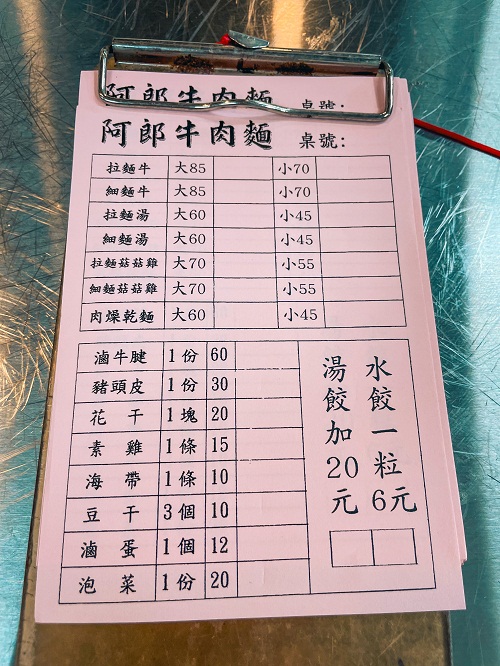 阿郎牛肉麵 桌號:
阿郎牛肉麵 桌號:
拉麵牛 大85 小70
細麵牛 大85 小70
拉麵湯 大60 小45
細麵湯 大60 小45
拉麵菇菇雞 大70 小55
細麵菇菇雞 大70 小55
肉燥乾麵 大60 小45
滷牛腱 1份 60
豬頭皮 1份 30
花干 1塊 20
素雞 1條 15
海帶 1條 10
豆干 3個 10
滷蛋 1個 12
泡菜 1份 20
水餃一粒6元
湯餃加20元